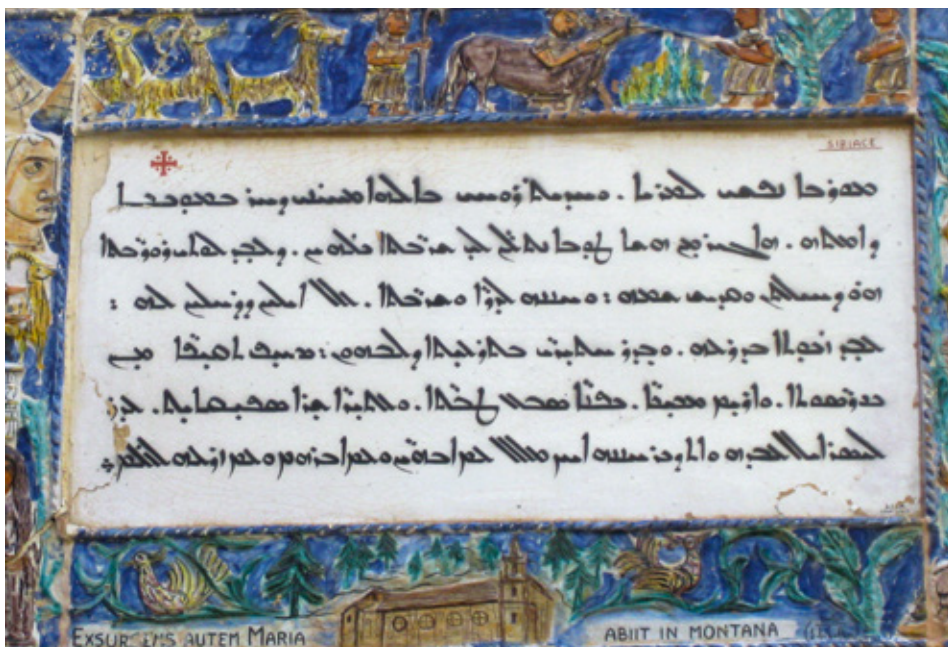 SIRIACE
ܡܘܪܒܐ ܢܦܫܝ ܠܡܪܝܐ . ܘܚܕܝܬ ܪܘܚܝ ܒܐܠܗܐ ܡܚܝܢܝ ܕܚܪ ܒܡܘܟܟܐ
ܕܐܡܬܗ . ܗܐ ܓܝܪ ܡܢ ܗܫܐ ܛܘܒܐ ܢܬܠܢ ܠܝ ܫܪܒܬܐ ܟܠܗܝܢ . ܕܥܒܕ ܠܘܬܝ ܪܘܪܒܬܐ
ܗܘ ܕܚܝܠܬܢ ܘܩܕܝܫ ܫܡܗ : ܘܚܢܢܗ ܠܕܪܐ ܘܫܪܒܬܐ . ܥܠ ܐܝܠܝܢ ܕܕܚܠܝܢ ܠܗ :
ܥܒܕ ܙܟܘܬܐ ܒܕܪܥܗ . ܘܒܕܪ ܚܬܝܪܝ ܒܬܪܥܝܬܐ ܕܠܒܗܘܢ : ܣܚܦ ܬܩܝܦܐ ܡܢ
ܟܘܪܣܘܬܐ . ܘܐܪܝܡ ܡܟܝܟܐ . ܟܦܢܐ ܣܒܥ ܛܒܬܐ . ܘܥܬܝܪܐ ܫܪܐ ܣܦܝܩܐܝܬ . ܥܕܪ
ܠܐܝܣܪܝܠ ܥܒܕܗ ܘܐܬܕܟܪ ܚܢܢܗ ܐܝܟ ܕܡܠܠ ܥܡ ܐܒܗܝܢ ܘܥܡ ܐܒܪܗܡ ܘܥܡ ܙܪܥܗ ܠܥܠܡ
EXSURGENS AUTEM MARIA ABIIT IN MONTANA